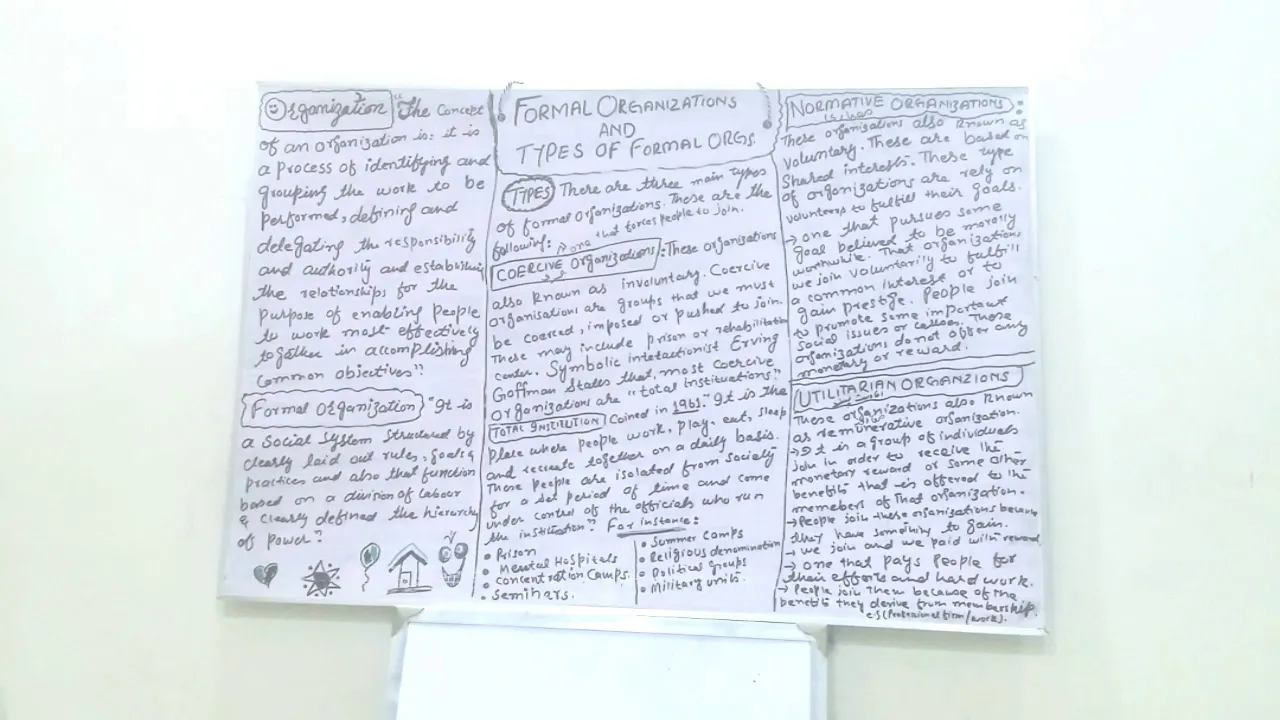 Organization "The Concept
of an organization is: it is
a Process of identifying and
grouping the work to be
Performed, defining and
delegating the responsibility
and authority and establishing
the relationships for the
purpose of enabling People
to work most effectively
together in accomplishing
Common objectives"
Formal Organization "It is
a Social System Structured by
clearly laid out rules, goals &
practices and also that function
based on a division of Labour
& clearly defined the hierarchy
of Power"
FORMAL ORGANIZATIONS
AND
TYPES OF FORMAL ORGS.
TYPES There are three main types
of formal organizations. These are the
following: one that forces people to join.
COERCIVE Organizations: These organizations
also known as involuntary. Coercive
Organisations are groups that we must
be coerced, imposed or pushed to join.
These may include prison or rehabilitation
center. Symbolic interactionist Erving
Goffman States that, most coercive
organizations are "total Instituations."
TOTAL INSTITUTION Coined in 1961. "It is the
Place where people work, play, eat, sleep
and recreate together on a daily basis.
These people are isolated from society
for a set period of time and come
under control of the officials who run
the institution" For instance:
• Prison
• Mental Hospitals
• Concentration Camps.
• Seminars.
• Summer Camps
• Religious denomination
• Political groups
• Military units.
NORMATIVE ORGANIZATIONS:
These organizations also known as
Voluntary. These are based on
Shared interests. These type
of organizations are rely on
volunteers to fulfill their goals.
→ one that pursues some
goal believed to be morally
worthwhile. That organizations
we join voluntarily to fulfill
a common interest or to
gain prestige. People join
to promote some important
social issues or causes. These
organizations do not offer any
monetary or reward.
UTILITARIAN ORGANZIONS
These organizations also known
as remunerative organization.
→ It is a group of individuals
join in order to receive the
monetary reward or some other
benefits that is offered to the
memebers of that organization.
→ People join these organizations because
they have something to gain.
→ we join and we paid with reward.
→ one that pays People for
their efforts and hard work.
→ People join them because of the
benefits they derive from membership.
e.g (Professional firm/work).